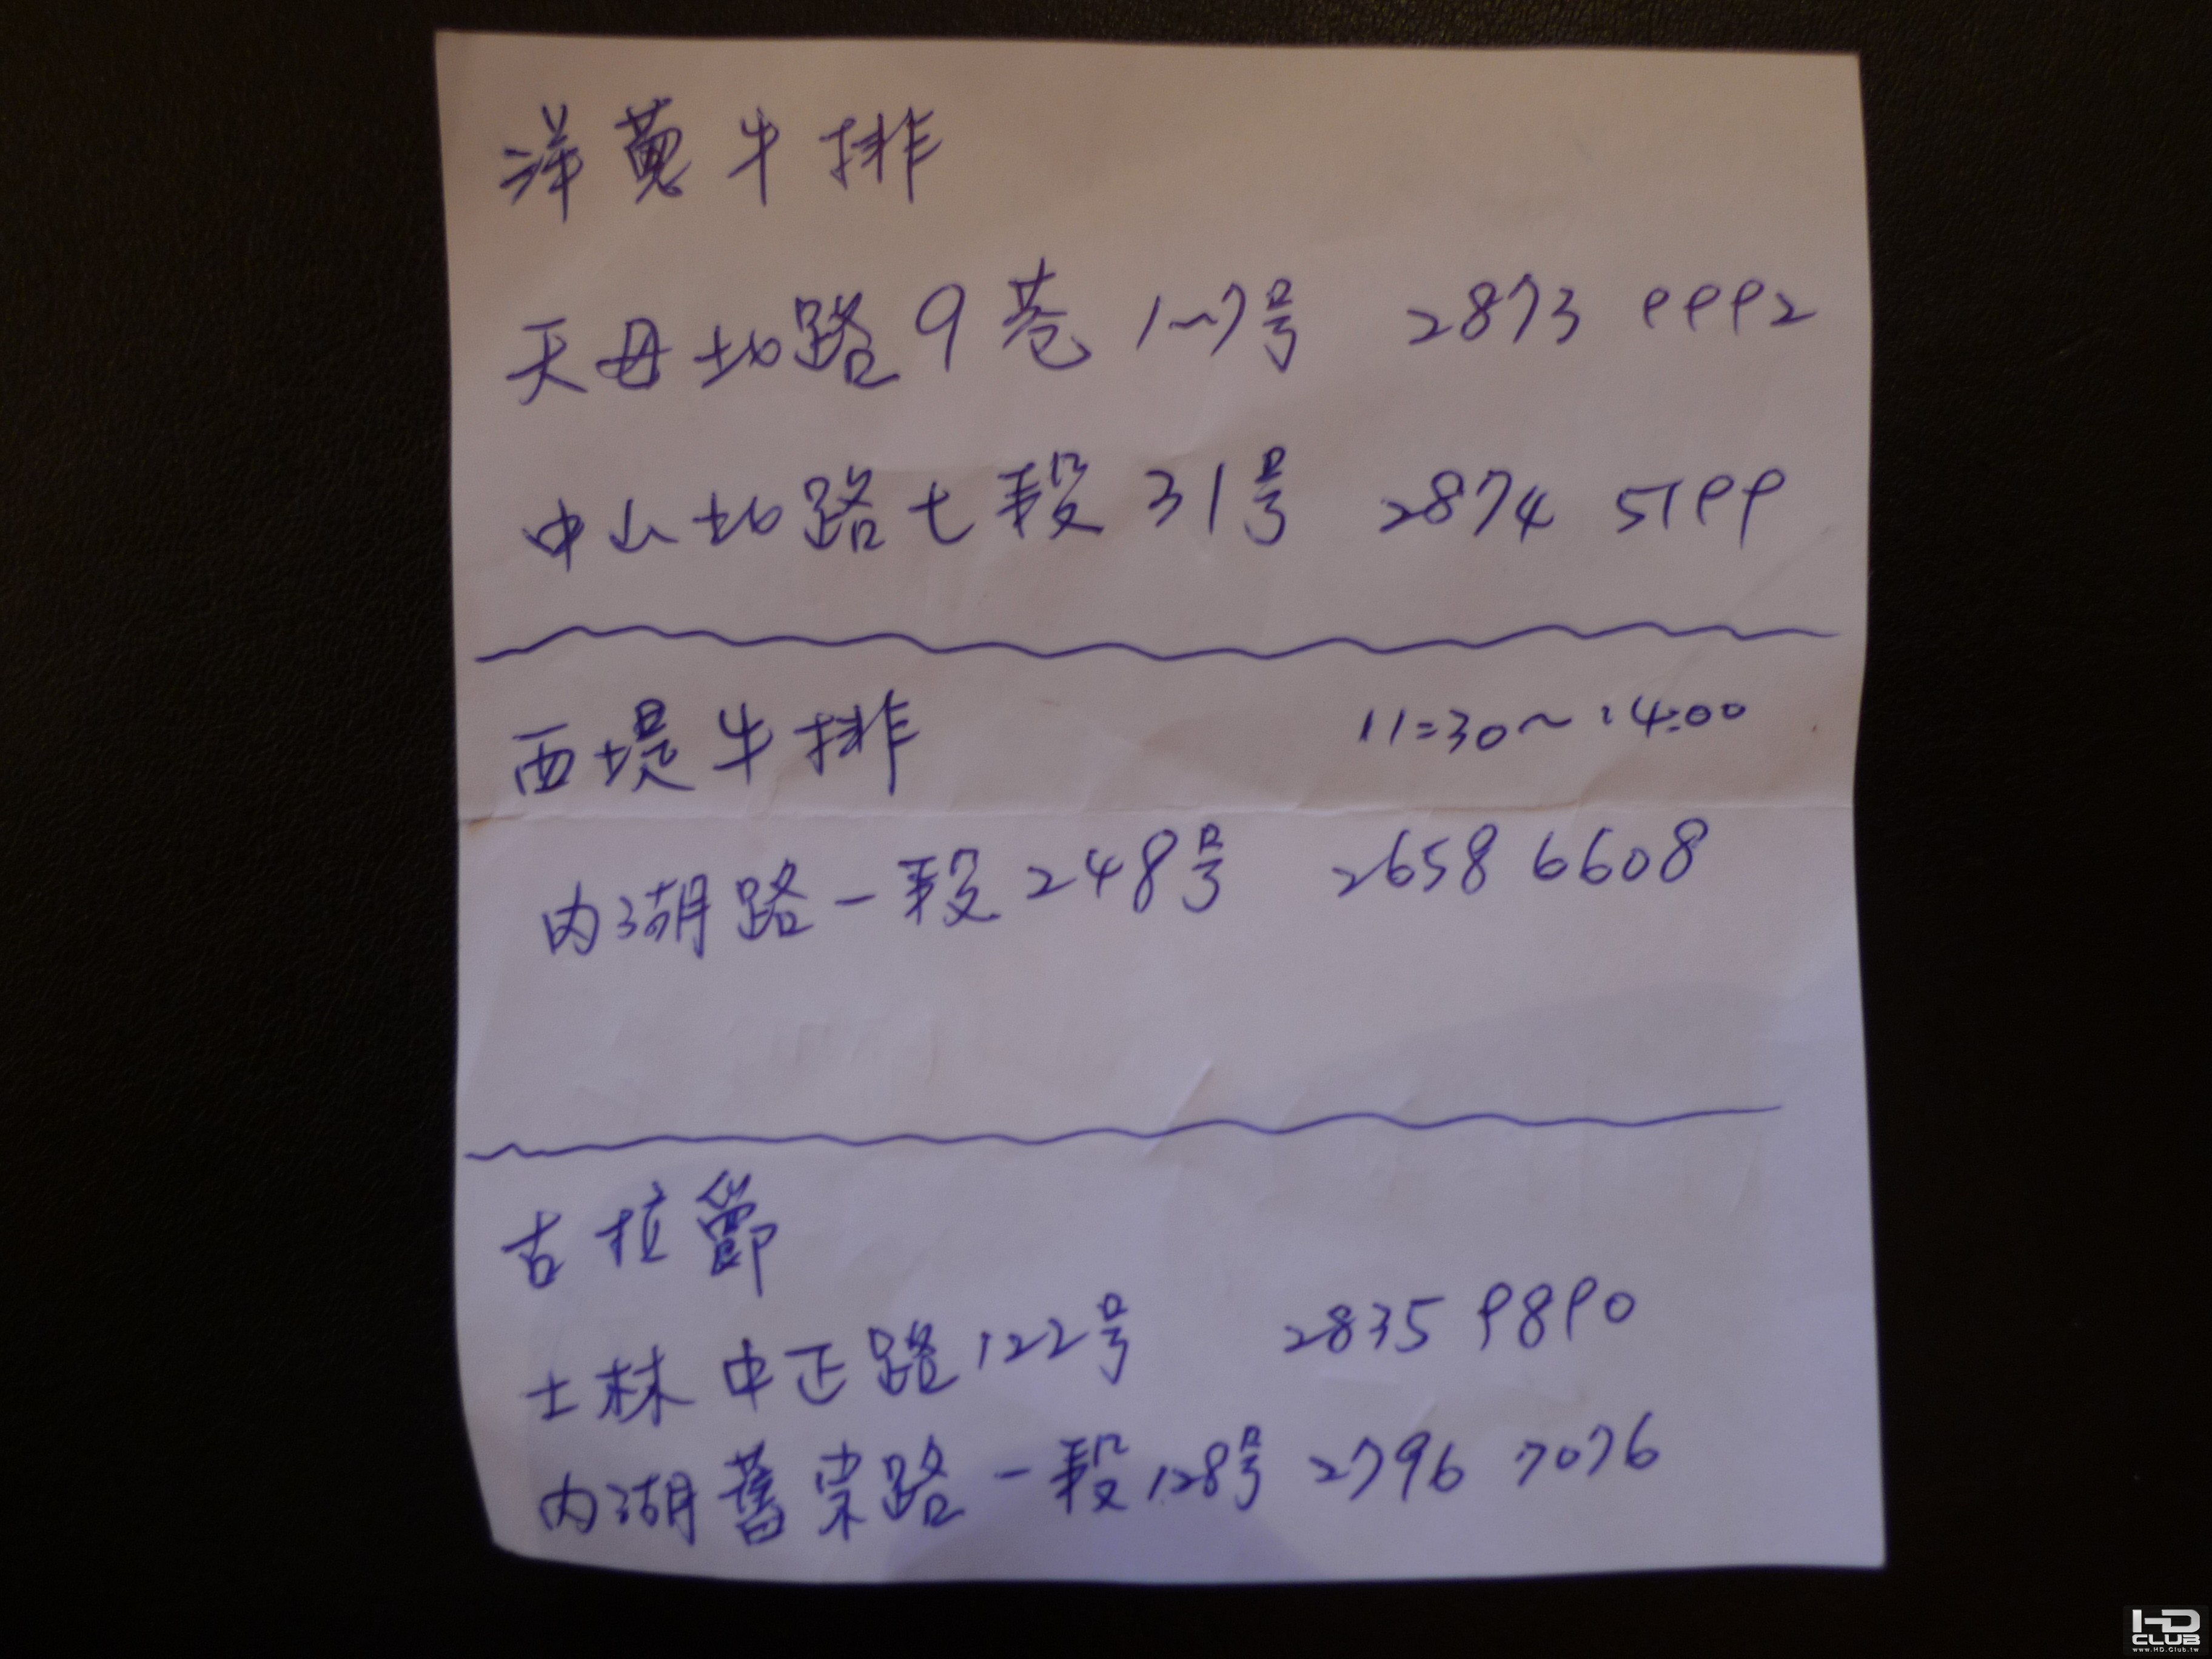 洋蔥牛排
天母北路9巷1~7号 2873 9992
中山北路七段31号 2874 5199
西堤牛排 11:30~14:00
内湖路一段248号 2658 6608
古拉爵
士林中正路122号 2835 9890
内湖舊宗路一段128号 2796 7076
HD
CLUB
www.HD.Club.tw